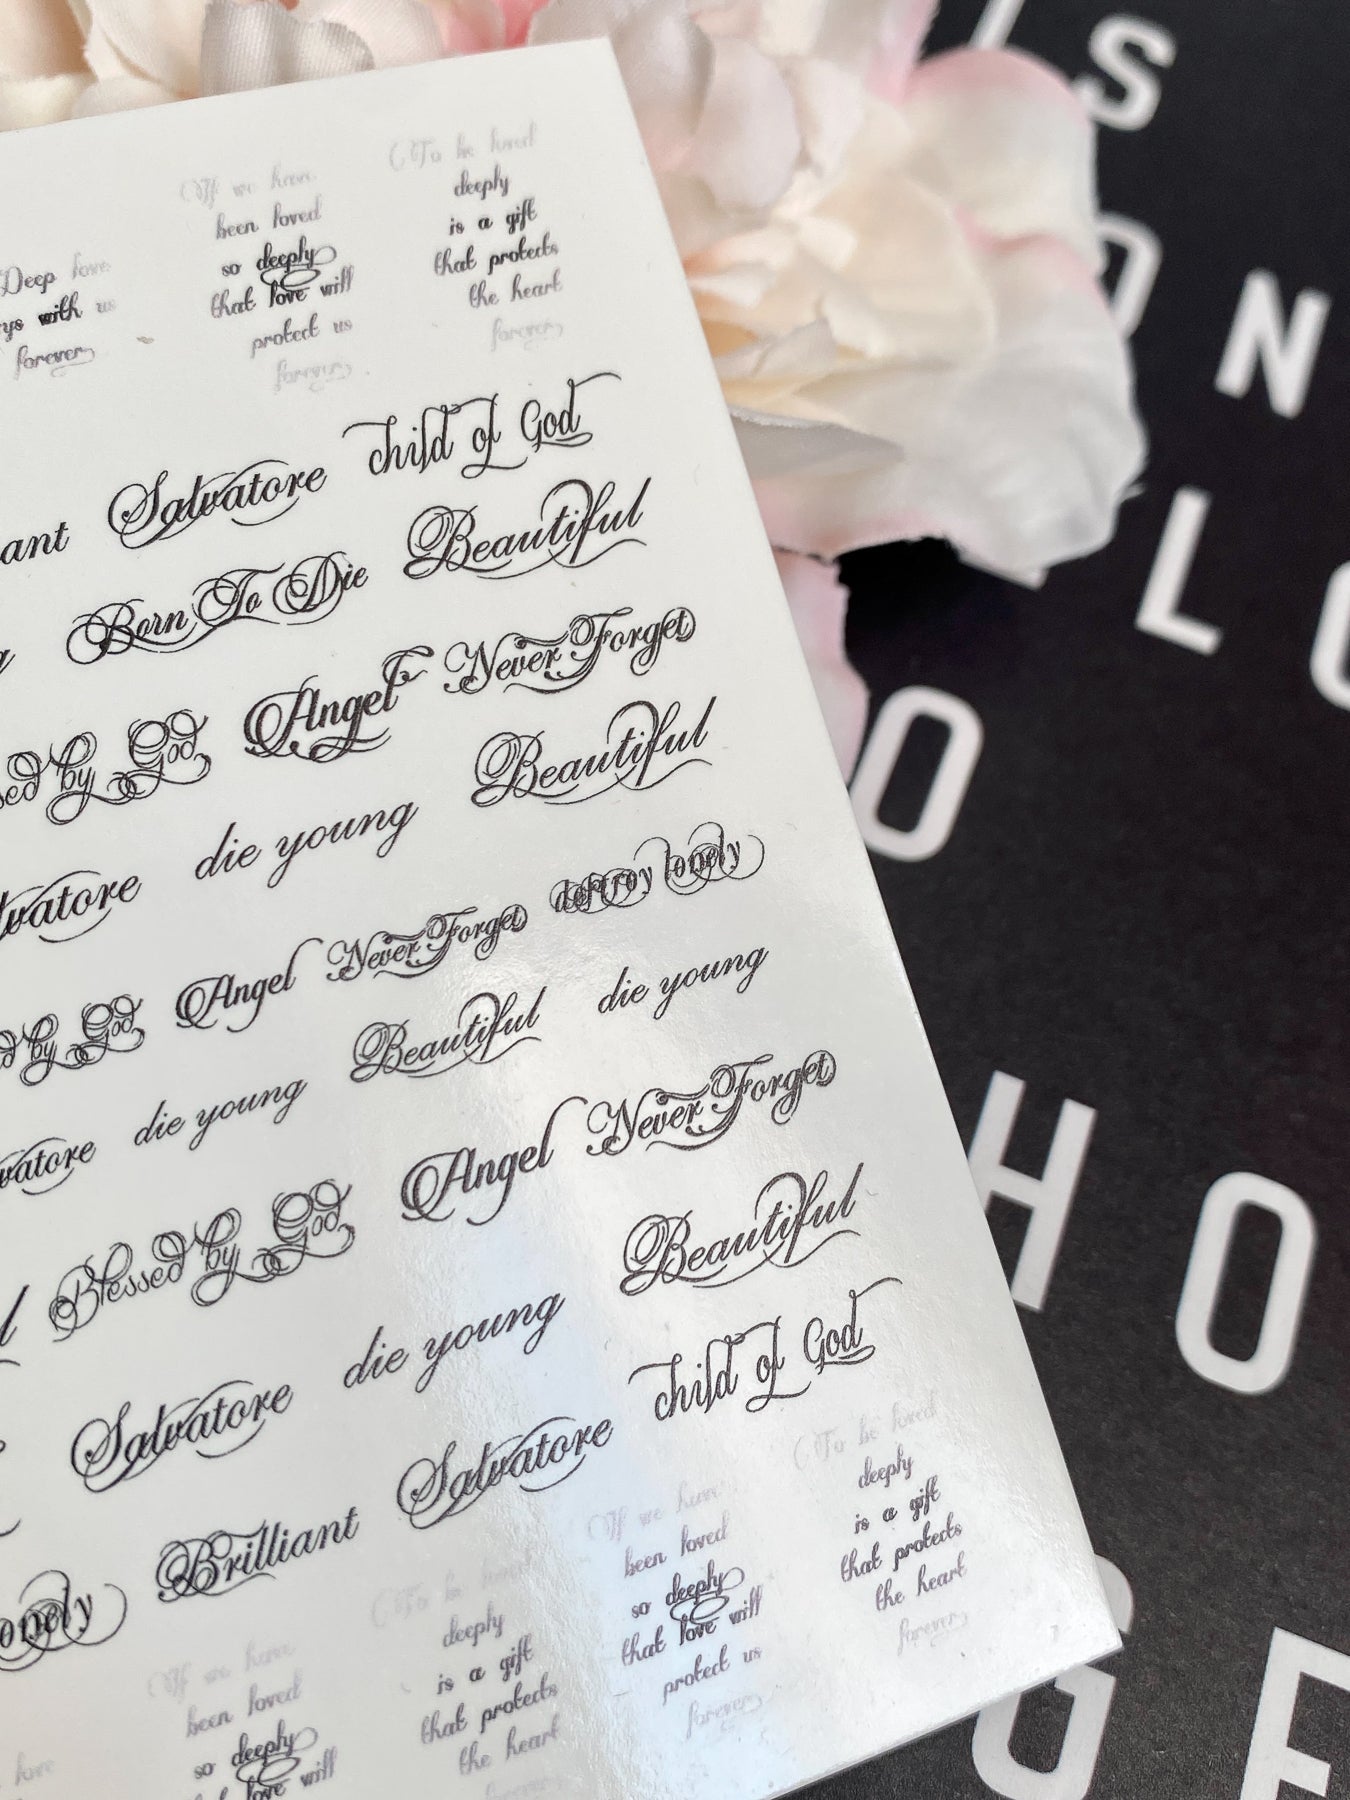 S
O N
L O
O
H O
G E
Deep love
with us
forever
If we have
been loved
so deeply
that love will
protect us
forever
To be loved
deeply
is a gift
that protects
the heart
forever
Salvatore child of God
Born To Die Beautiful
by God Angel Never Forget
die young Beautiful
by God Angel Never Forget destroy lonely
die young Beautiful die young
Blessed by God Angel Never Forget
Salvatore die young Beautiful
Brilliant Salvatore child of God
If we have
been loved
so deeply
that love will
protect us
forever
To be loved
deeply
is a gift
that protects
the heart
forever
love
If we have
been loved
so deeply
love will
To be loved
deeply
is a gift
that protects
the heart
forever